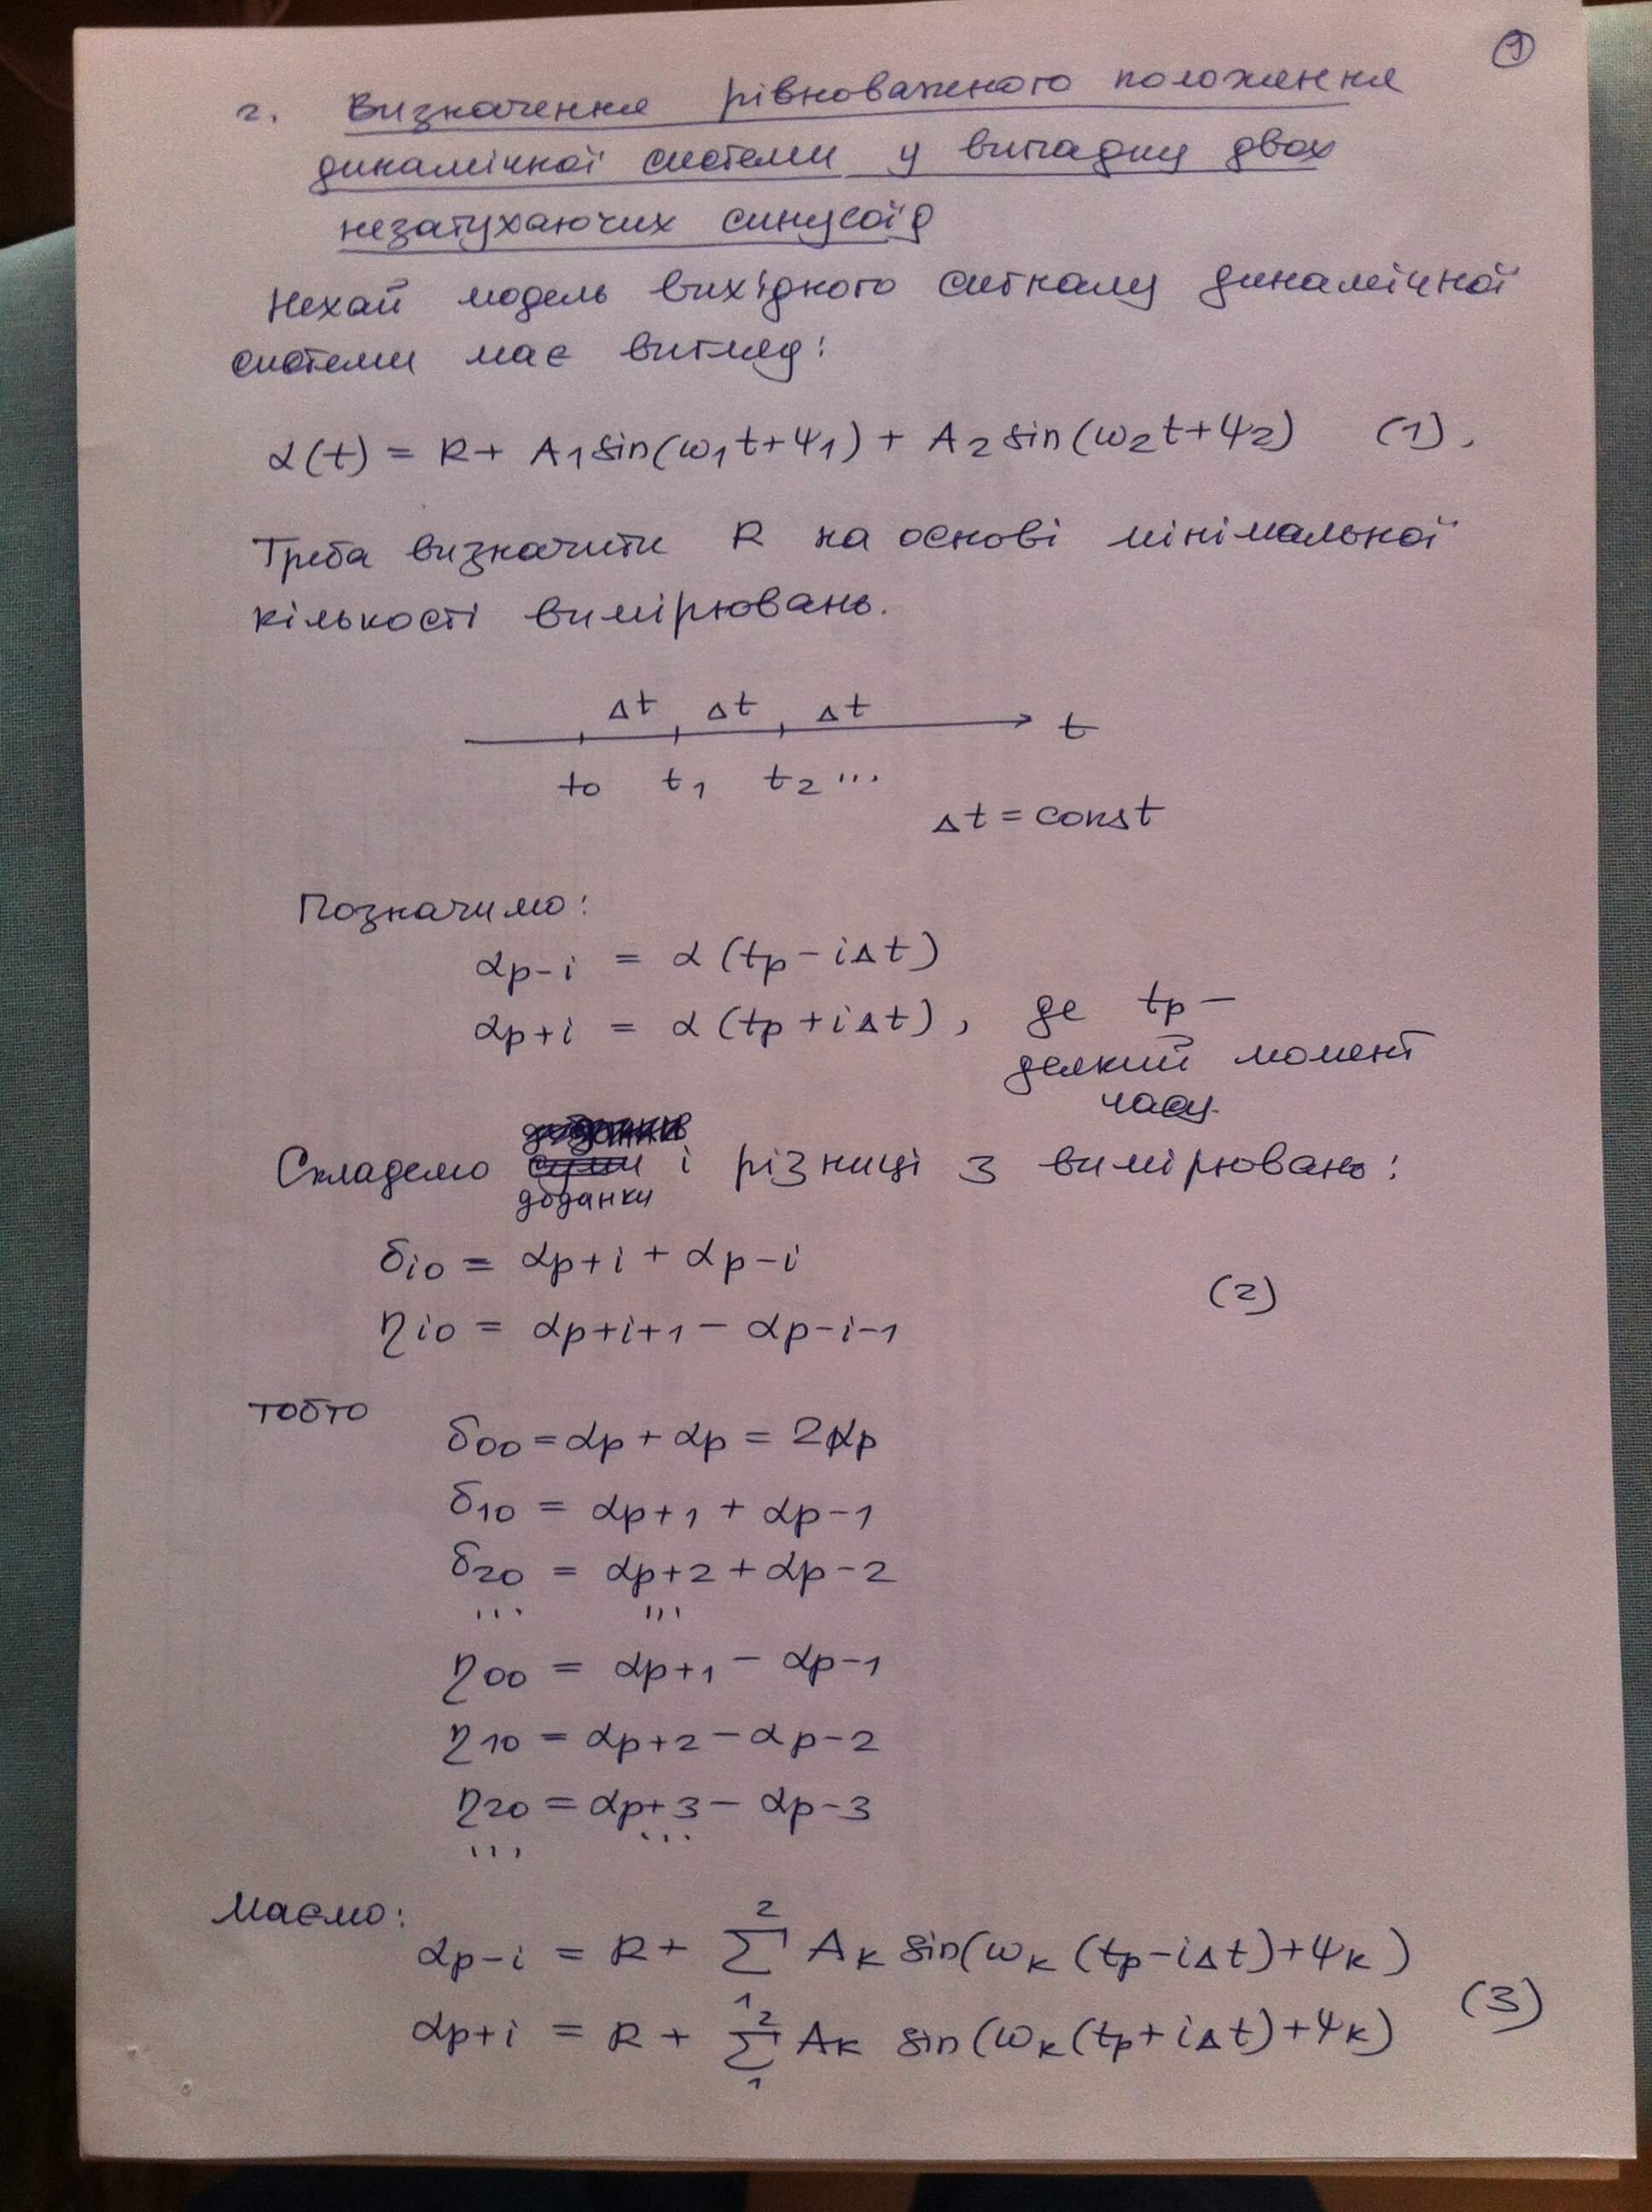 9
2. Визначення рівноваженого положення
динамічної системи у випадку двох
незатухаючих синусоїд
Нехай модель вихідного сигналу динамічної
системи має вигляд:
α(t) = R + A₁sin(ω₁t+ψ₁) + A₂sin(ω₂t+ψ₂) (1).
Треба визначити R на основі мінімальної
кількості вимірювань.
Δt Δt Δt
t
t₀ t₁ t₂ ...
Δt = const
Позначимо:
αp-i = α(tp - iΔt)
αp+i = α(tp + iΔt), де tp –
деякий момент
часу.
Складемо і різниці з вимірювань:
доданки
δi0 = αp+i + αp-i
(2)
ηi0 = αp+i+1 - αp-i-1
тобто
δ00 = αp + αp = 2αp
δ10 = αp+1 + αp-1
δ20 = αp+2 + αp-2
... ...
η00 = αp+1 - αp-1
η10 = αp+2 - αp-2
η20 = αp+3 - αp-3
... ...
Маємо:
αp-i = R + ∑₁² Aₖ sin(ωₖ(tp - iΔt) + ψₖ)
(3)
αp+i = R + ∑₁² Aₖ sin(ωₖ(tp + iΔt) + ψₖ)